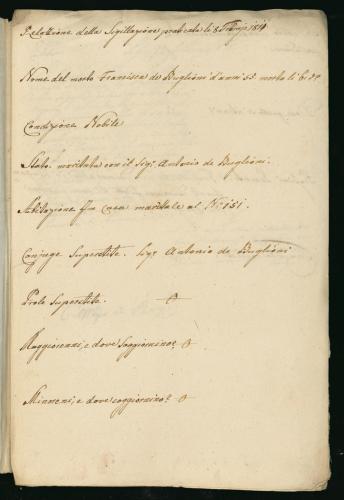 Relazione della Sigillazione praticata li 8 1814
Nome del morto Francisca de Buglioni d'anni 55 morta li 6. do
Condizione Nobile
Stato. maritata con il Sigr Antonio de Buglioni.
Abitazione in casa maritale al No 151.
Conjuge Superstite. Sigr Antonio de Buglioni
Prole Superstite. O
Maggiorenni, e dove soggiornino? O
Minoreni, e dove soggiornino? O